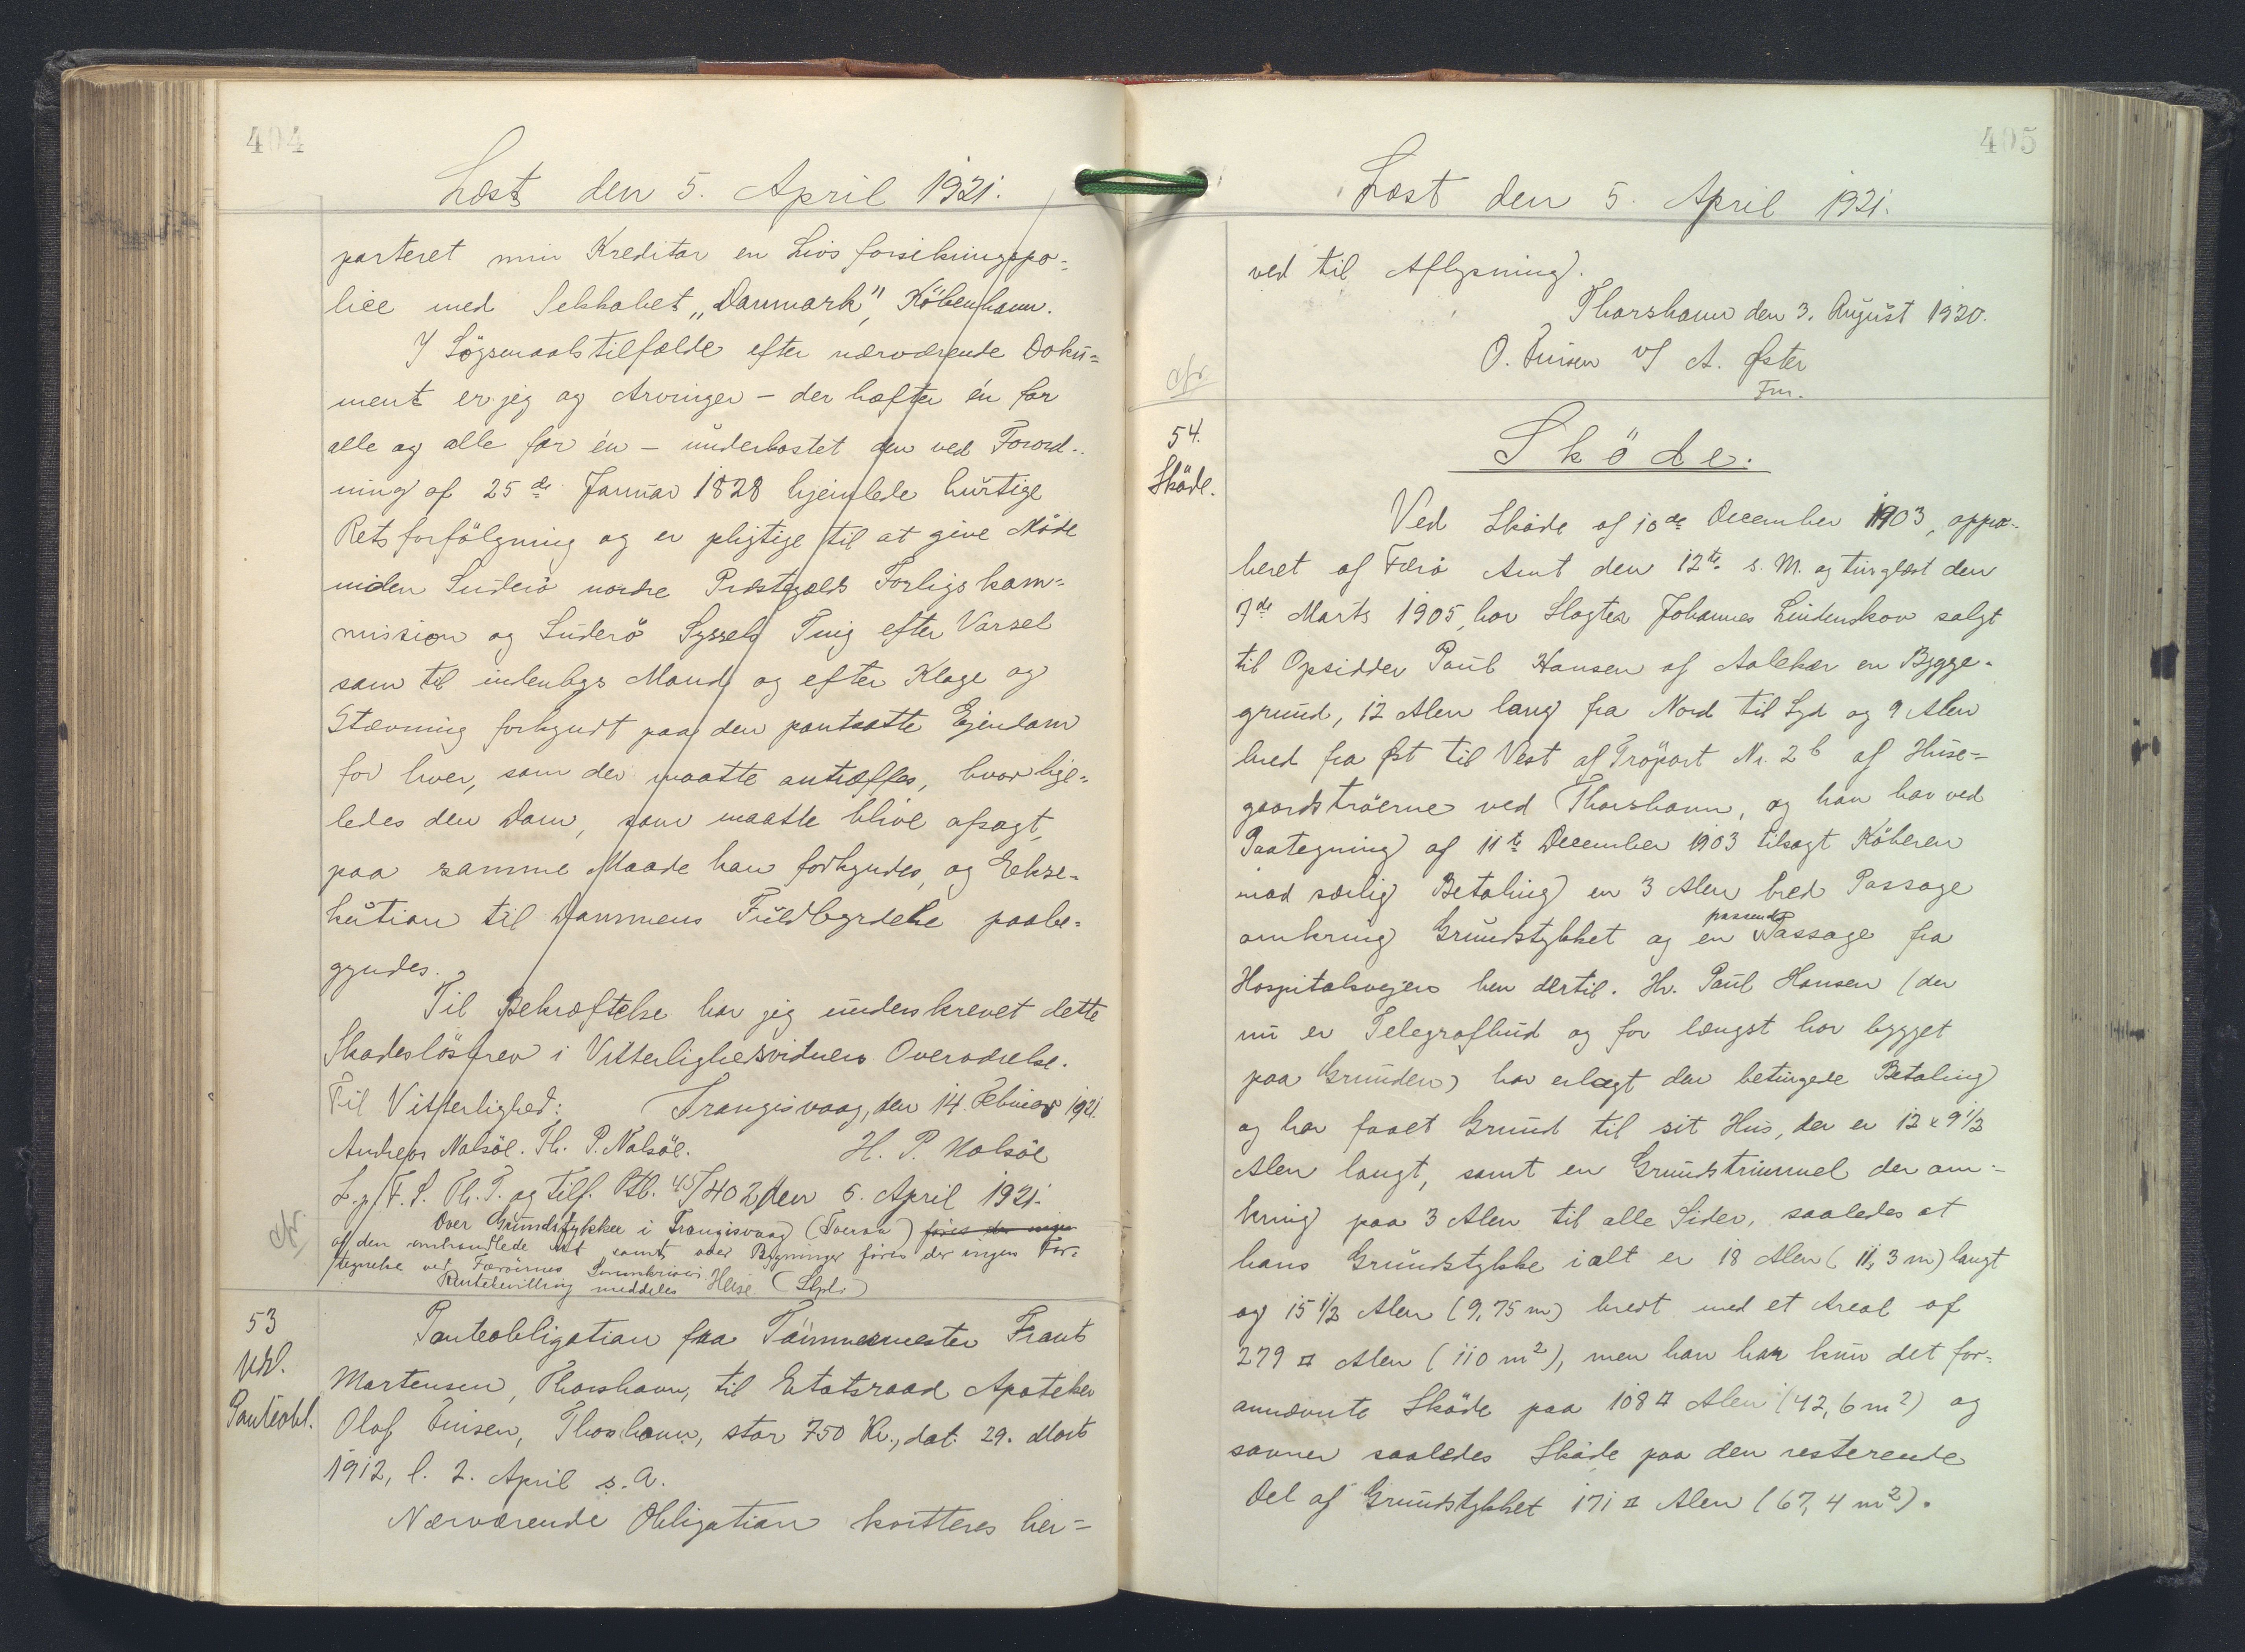 404
Læst den 5. April 1921.
porteret min Kreditor en Livsforsikringspo-
lice med Selskabet „Danmark", København.
I Søgsmaalstilfælde efter nærværende Doku-
ment er jeg og Arvinger – der hæfter én for
alle og alle for én – underkastet den ved Forord-
ning af 25de Januar 1828 hjemlede hurtige
Retsforfølgning og er pligtige til at give Møde
inden Suderø nordre Præstegjælds Forligskom-
mission og Suderø Syssels Ting efter Varsel
som til indenbygs Mand og efter Klage og
Stævning forkyndt paa den pantsatte Ejendom
for hver, som der maatte antræffes, hvor lige-
ledes den Dom, som maatte blive afsagt,
paa samme Maade kan forkyndes, og Ekse-
kution til Dommens Fuldbyrdelse paabe-
gyndes.
Til Bekræftelse har jeg underskrevet dette
Skadesløsbrev i Vitterlighedsvidners Overværelse.
Til Vitterlighed: Trangisvaag, den 14. Februar 1921.
Andreas Nolsøe. Th. P. Nolsøe. H. P. Nolsøe
L. p. F. S. Th. T. og tilf. Ptb. 45/402 den 5. April 1921.
cfr.
Over Grundstykker i Trangisvaag (Tveraa) føres der ingen
af den omhandlede Art samt over Bygninger føres der ingen For-
tegnelse ved Færøernes Sorenskriveri.
Rentebevilling meddeles Heise (Skpl.)
53
Udsl.
Panteobl.
Panteobligation fra Tømmermester Frants
Mortensen, Thorshavn, til Etatsraad Apoteker
Olaf Finsen, Thorshavn, stor 750 Kr., dat. 29. Marts
1912, l. 2. April s. A.
Nærværende Obligation kvitteres her-
405
Læst den 5. April 1921.
ved til Aflysning.
Thorshavn den 3. August 1920.
O. Finsen v/ A. Øster
Fm.
cfr
54.
Skøde.
Skøde.
Ved Skøde af 10de December 1903, appro-
beret af Færø Amt den 12te s. M. og tinglæst den
7de Marts 1905, har Slagter Johannes Lindenskov solgt
til Opsidder Paul Hansen af Aalekær en Bygge-
grund, 12 Alen lang fra Nord til Syd og 9 Alen
bred fra Øst til Vest af Trøpart Nr. 2b af Huse-
gaardstrøerne ved Thorshavn, og han har ved
Paategning af 11te December 1903 tilsagt Køberen
mod særlig Betaling en 3 Alen bred Passage
omkring Grundstykket og en passende Passage fra
Hospitalsvejen hen dertil. Hr. Paul Hansen (der
nu er Telegrafbud og for længst har bygget
paa Grunden) har erlagt den betingede Betaling
og har faaet Grund til sit Hus, der er 12 x 9 1/2
Alen langt, samt en Grundstrimmel der om-
kring paa 3 Alen til alle Sider, saaledes at
hans Grundstykke ialt er 18 Alen (11,3 m) langt
og 15 1/2 Alen (9,75 m) bredt med et Areal af
279 □ Alen (110 m²), men han har kun det for-
annævnte Skøde paa 108 □ Alen (42,6 m²) og
savner saaledes Skøde paa den resterende
Del af Grundstykket 171 □ Alen (67,4 m²).